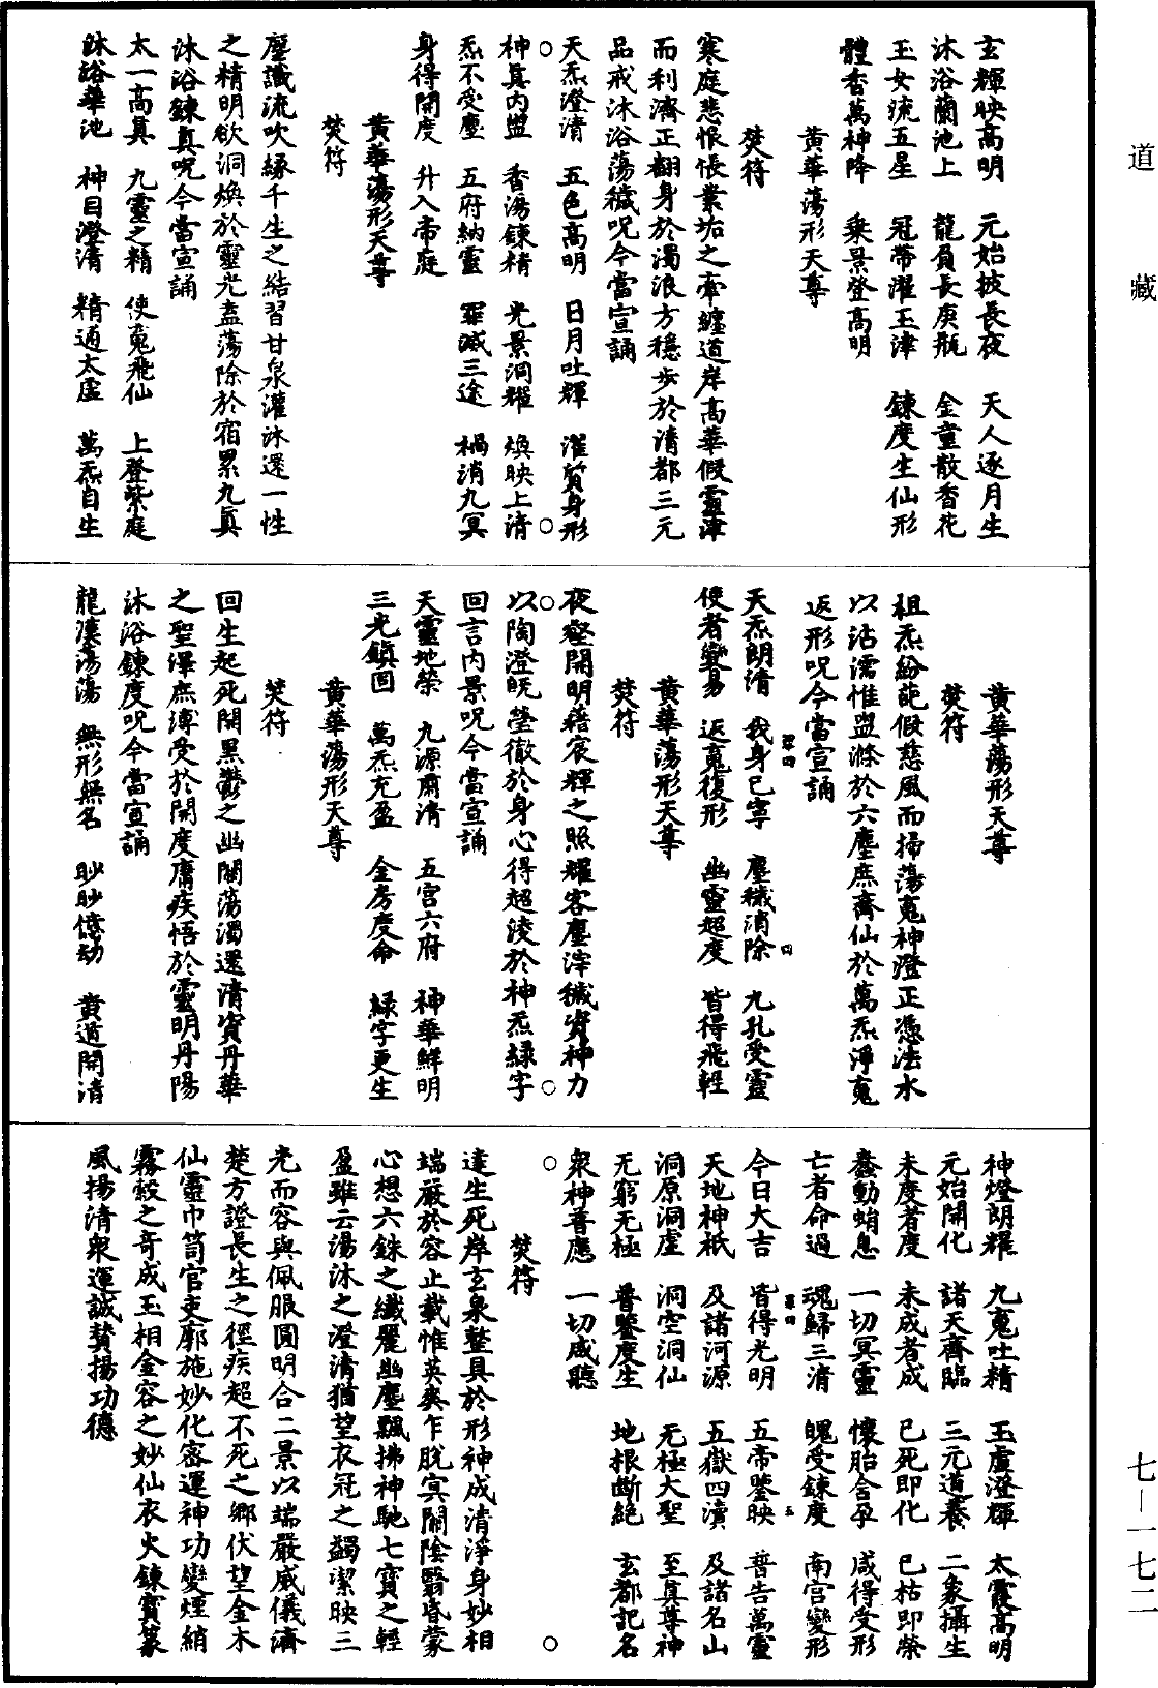 道藏
玄輝映高明 元始披長夜 天人逐月生
沐浴蘭池上 龍負長庚瓶 金童散香花
玉女疏五星 冠帶濯玉津 鍊度生仙形
體香萬神降 乘景登高明
黃華蕩形天尊
焚符
寒庭悲恨悵業垢之牽纏道岸高華假靈津
而利濟正翻身於濁浪方穩步於清都三元
品戒沐浴蕩穢呪今當宣誦
天炁澄清 五色高明 日月吐輝 濯質身形
神真內盥 香湯鍊精 光景洞耀 煥映上清
炁不受塵 五府納靈 罪滅三途 禍消九冥
身得開度 升入帝庭
黃華蕩形天尊
焚符
塵識流吹緣千生之結習甘泉灌沐還一性
之精明欲洞煥於靈光盍蕩除於宿累九真
沐浴鍊真呪今當宣誦
太一高真 九靈之精 使䰟飛仙 上登紫庭
沐浴華池 神目澄清 精通太虛 萬炁自生
黃華蕩形天尊
焚符
祖炁紛葩假慈風而掃蕩䰟神澄正憑法水
以沾濡惟盥滌於六塵庶齊仙於萬炁淨䰟
返形呪今當宣誦
天炁朗清 我身已寧 塵穢消除 九孔受靈
使者變易 返䰟復形 幽靈超度 皆得飛輕
黃華蕩形天尊
焚符
夜壑開明藉宸輝之照耀客塵滓穢資神力
以陶澄旣瑩徹於身心得超淩於神炁綠字
回言內景呪今當宣誦
天靈地榮 九源肅清 五宮六府 神華鮮明
三光鎮固 萬炁充盈 金房度命 綠字更生
黃華蕩形天尊
焚符
回生起死開黑鬱之幽關蕩濁還清資丹華
之聖澤庶溥受於開度庸疾悟於靈明丹陽
沐浴鍊度呪今當宣誦
龍漢蕩蕩 無形無名 眇眇億劫 黃道開清
神燈朗耀 九䰟吐精 玉虛澄輝 太霞高明
元始開化 諸天齊臨 三元道養 二象攝生
未度者度 未成者成 已死即化 已枯即榮
蠢動蛸息 一切冥靈 懷胎含孕 咸得受形
亡者命過 魂歸三清 魄受鍊度 南宮變形
今日大吉 皆得光明 五帝鑒映 普告萬靈
天地神祇 及諸河源 五嶽四瀆 及諸名山
洞原洞虛 洞空洞仙 无極大聖 至真尊神
无窮无極 普鑒度生 地根斷絕 玄都記名
眾神普應 一切咸聽
焚符
達生死岸玄泉整具於形神成清淨身妙相
端嚴於容止載惟英爽乍脫冥關陰翳昏蒙
心想六銖之纖麗幽塵飄拂神馳七寶之輕
盈雖云湯沐之澄清猶望衣冠之蠲潔映三
光而容與佩服圓明合二景以端嚴威儀濟
楚方證長生之徑疾超不死之鄉伏望金木
仙靈巾笥官吏廓施妙化密運神功變煙綃
霧縠之奇成玉相金容之妙仙衣火鍊寶篆
風揚清眾運誠賛揚功德
七—一七二